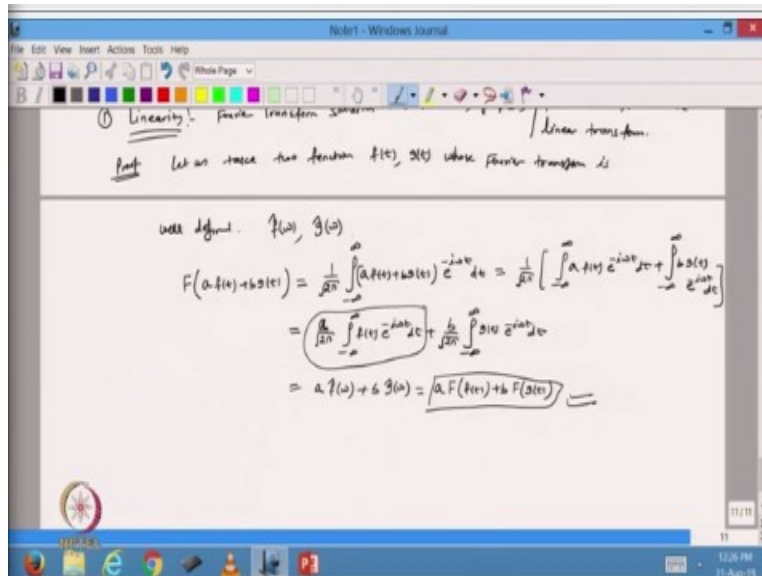 Note1 - Windows Journal
File Edit View Insert Actions Tools Help
Whole Page
B I
① Linearity:- Fourier Transform
linear transform.
Proof Let us take two function f(t), g(t) whose Fourier transform is
well defined. f̂(ω), ĝ(ω)
F(a f(t)+b g(t)) = 1/√2π ∫_{-∞}^{∞} (a f(t)+b g(t)) e^{-iωt} dt = 1/√2π [ ∫_{-∞}^{∞} a f(t) e^{-iωt} dt + ∫_{-∞}^{∞} b g(t) e^{-iωt} dt ]
= a/√2π ∫_{-∞}^{∞} f(t) e^{-iωt} dt + b/√2π ∫_{-∞}^{∞} g(t) e^{-iωt} dt
= a f̂(ω) + b ĝ(ω) = a F(f(t)) + b F(g(t))
NPTEL
11/11
11
12:26 PM
11-Aug-19